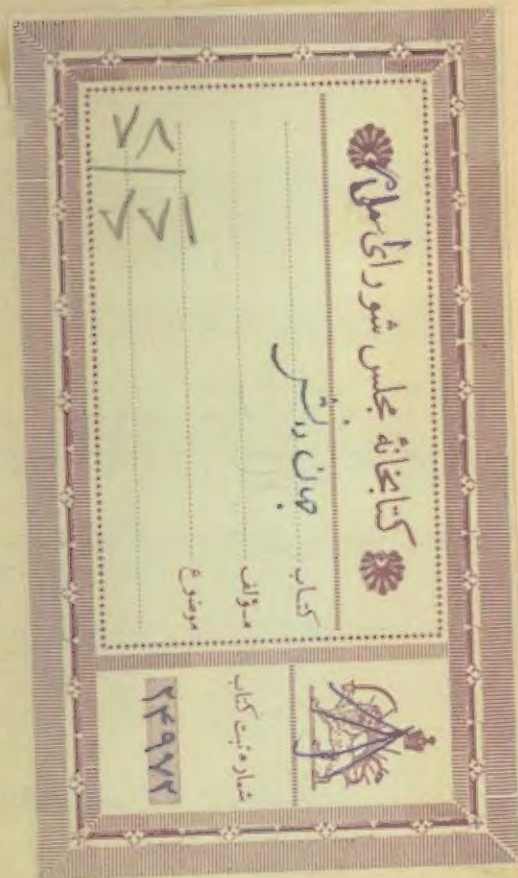 کتابخانهٔ مجلس شورای ملی
کتاب جهان دانش
مؤلف
موضوع
شمارهٔ ثبت کتاب
۲۴۹۷۲